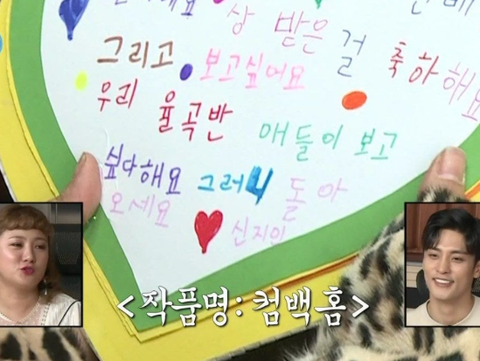 상 받은 걸 축하해요
그리고 보고싶어요
우리 율곡반 애들이 보고
싶다해요 그러니 돌아
오세요 신지민
<작품명: 컴백홈>